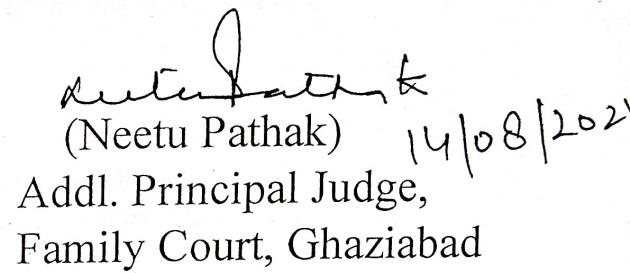 Neetu Pathak
(Neetu Pathak)
14/08/202
Addl. Principal Judge,
Family Court, Ghaziabad